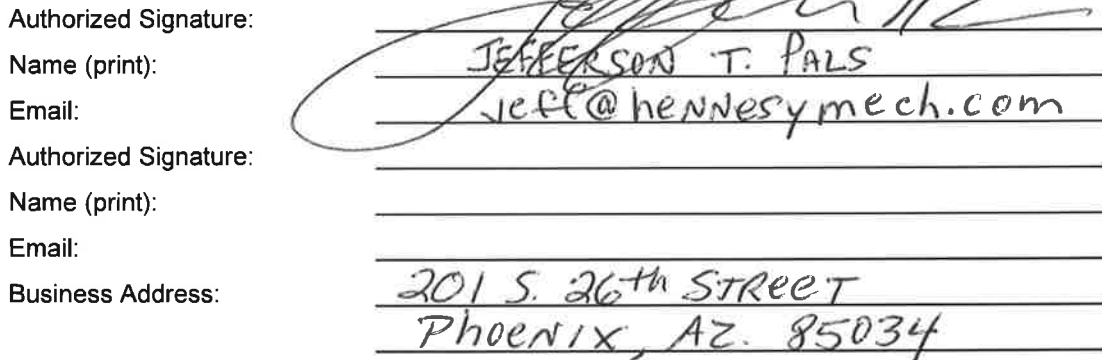 Authorized Signature:
Name (print): JEFFERSON T. PALS
Email: jeff@hennesymech.com
Authorized Signature:
Name (print):
Email:
Business Address: 201 S. 26th STReeT
PhoeNIX, AZ. 85034